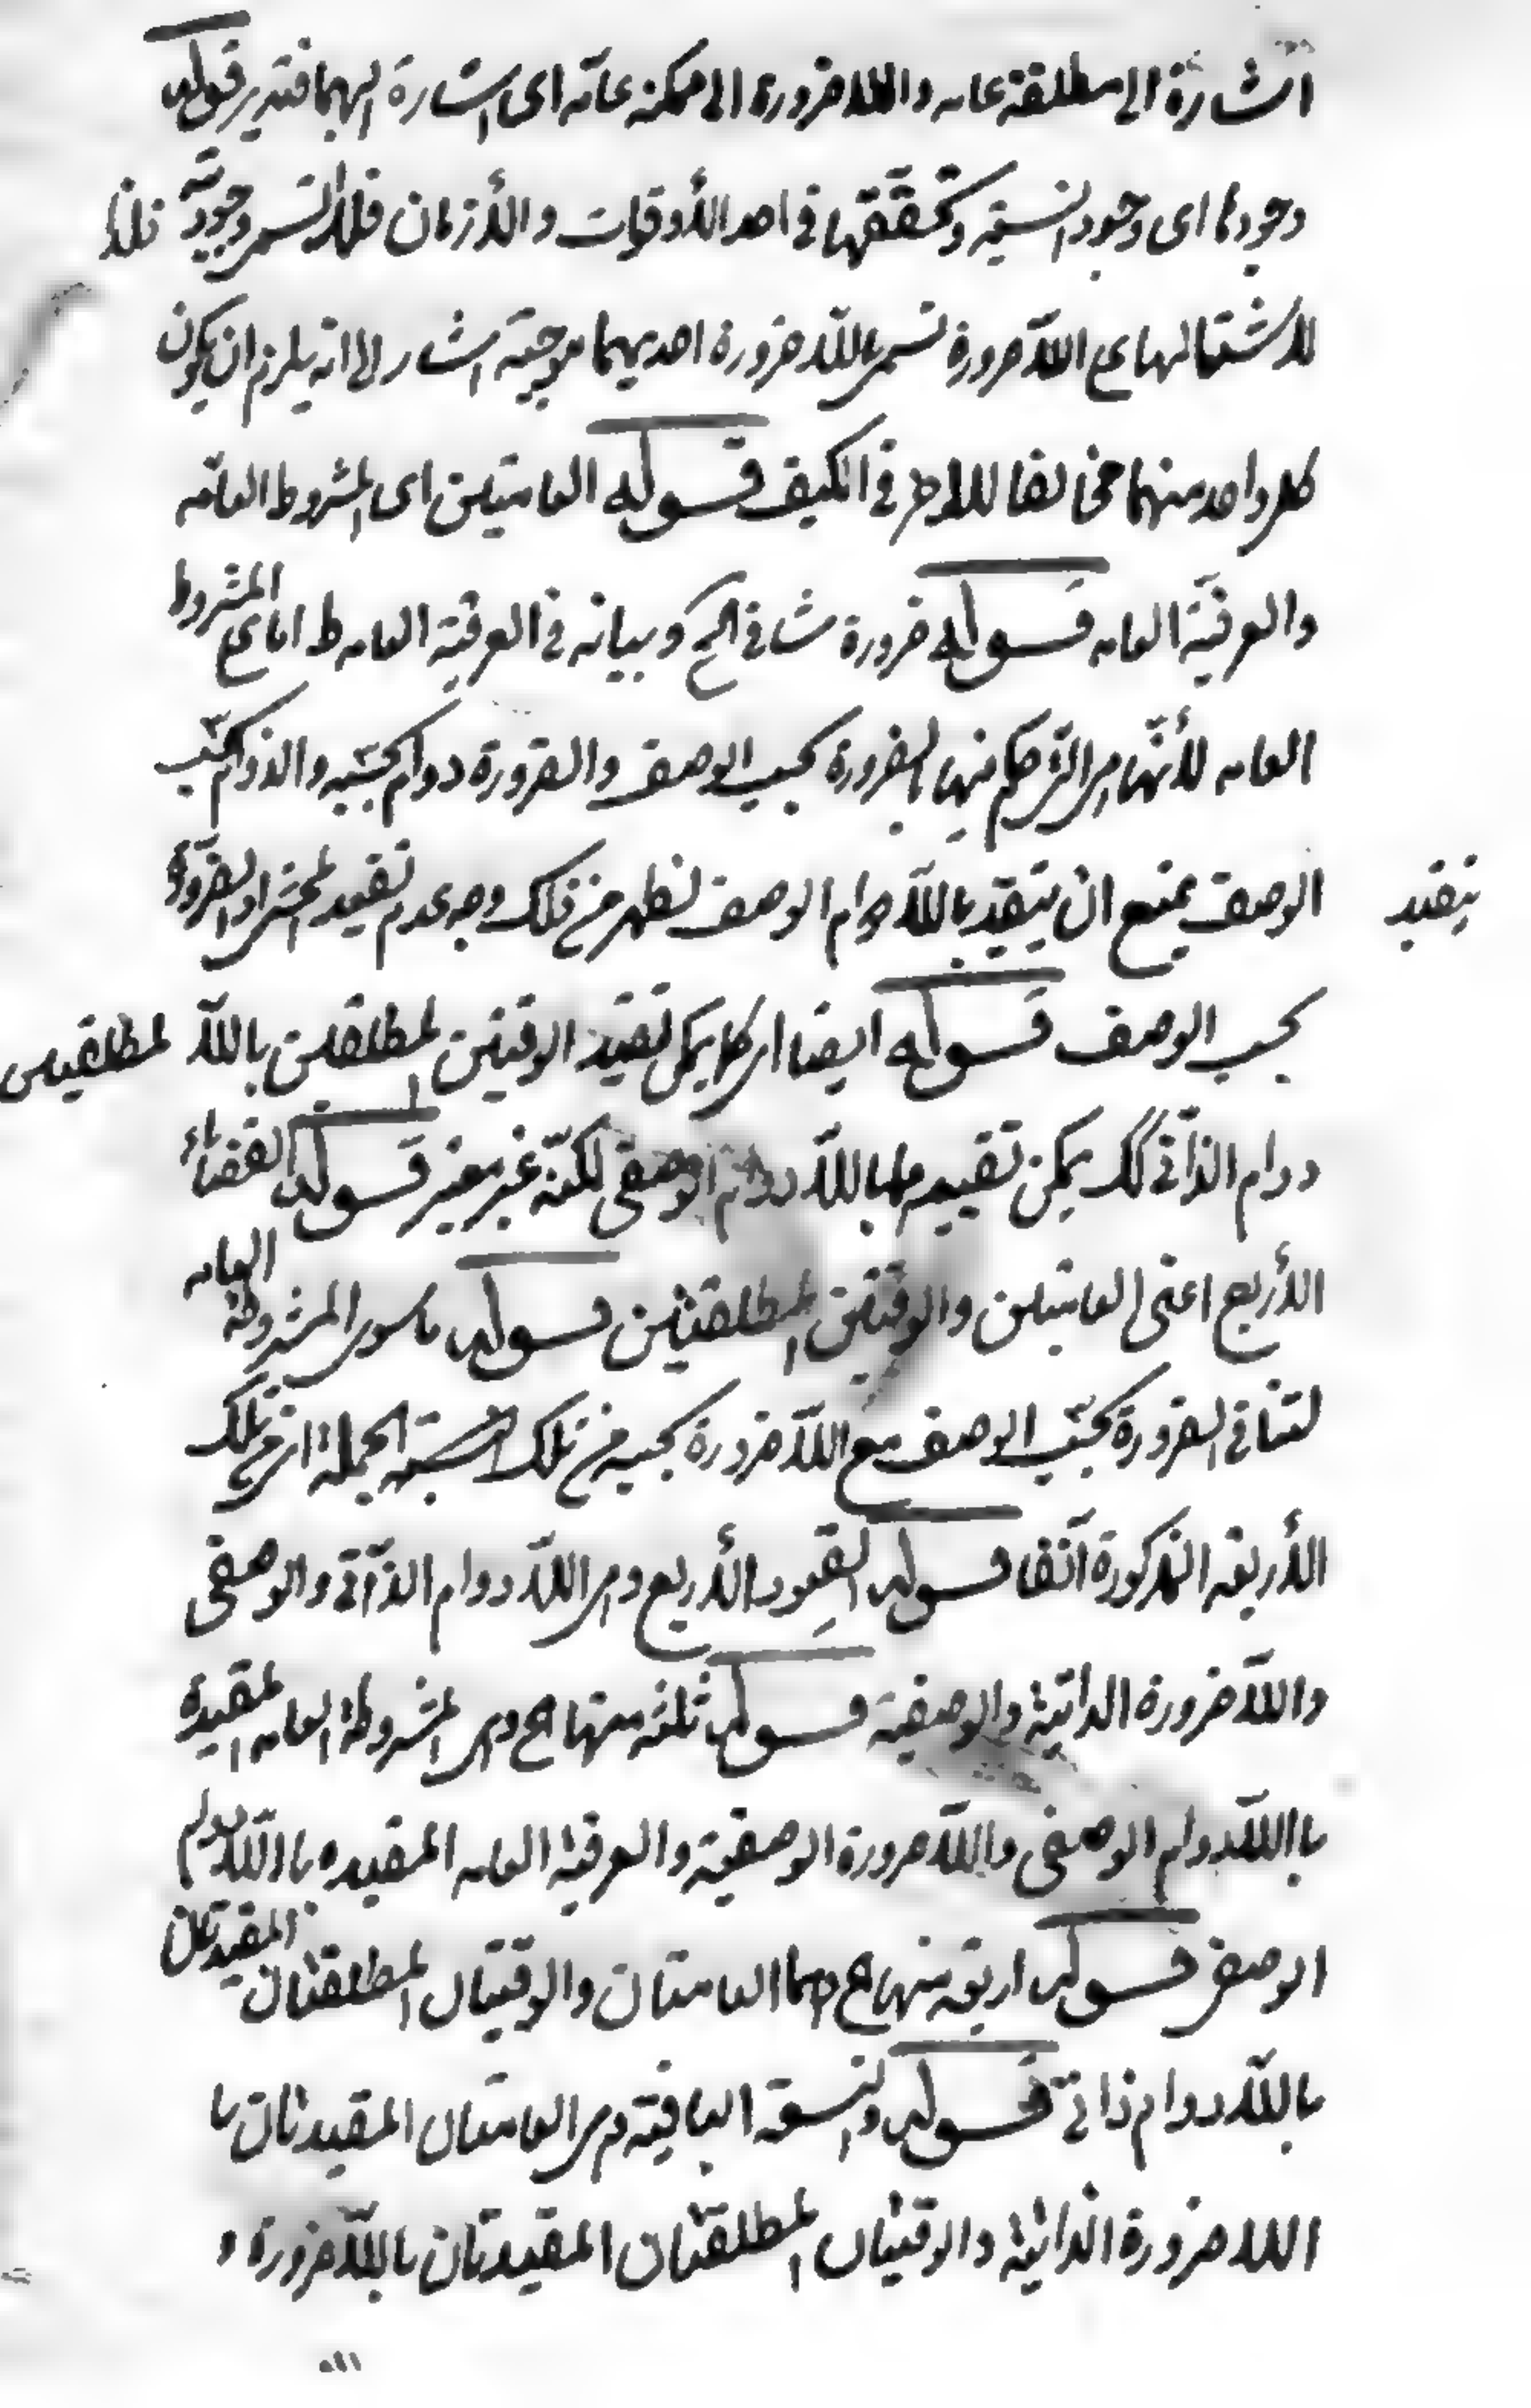 اشارة الى مطلقة عامه واللاضرورة الى ممكنه عامّه اى اشارة اليهما فتدبر قوله
وجودها اى وجود النسبة وتحققها فى احد الأوقات والأزمان فلهذا تسمى وجوديّة فلذا
لاشتمالها على اللّاضرورة تسمى باللّاضرورة احديهما موجبة اشار الى انه يلزم ان يكون
كل واحد منهما مخالفا للاخر فى الكيف قوله العامتين اى المشروط العامّه
والعرفيّة العامه قوله ضرورة تنافى الح وبيانه فى العرفيّة العامه ط اما فى المشروط
العامه لأنّها هى التى حكم فيها بالضرورة بحسب الوصف والضرورة دوام بحسبه والدوام بحسب
الوصف يمتنع ان يتقيّد باللّادوام الوصف فظهر من ذلك وجه عدم تقييد المشروط بالضرورة يتقيد
بحسب الوصف قوله ايضا اى كما يمكن تقييد الوقتيتين المطلقتين باللّا المطلقتين
دوام الذّاتى كك يمكن تقييدهما باللّادوام الوصفى لكنّه غير معتبر قوله القضاياء
الأربع اعنى العامتين والوقتيتين المطلقتين قوله ما سوى المشروطة العامه
لتنافى الضرورة بحسب الوصف مع اللّاضرورة بحسبه من تلك النسبة الجملة اى من تلك
الأربعه المذكورة آنفا قوله القيود الأربع وهى اللّادوام الذّاتى والوصفى
واللّاضرورة الذاتية والوصفية قوله ثلثه منها ح وهى المشروطة العامه المقيدة
باللّادوام الوصفى واللّاضرورة الوصفيّة والعرفيّة العامه المقيده باللّادوام
الوصفى قوله اربعه منها ح وهما العامتان والوقتيتان المطلقتان المقيدتان
باللّادوام ذاتى قوله والتسعة الباقية وهى العامتان المقيدتان با
اللاضرورة الذاتيّة والوقتيتان المطلقتان المقيدتان باللّاضرورة و